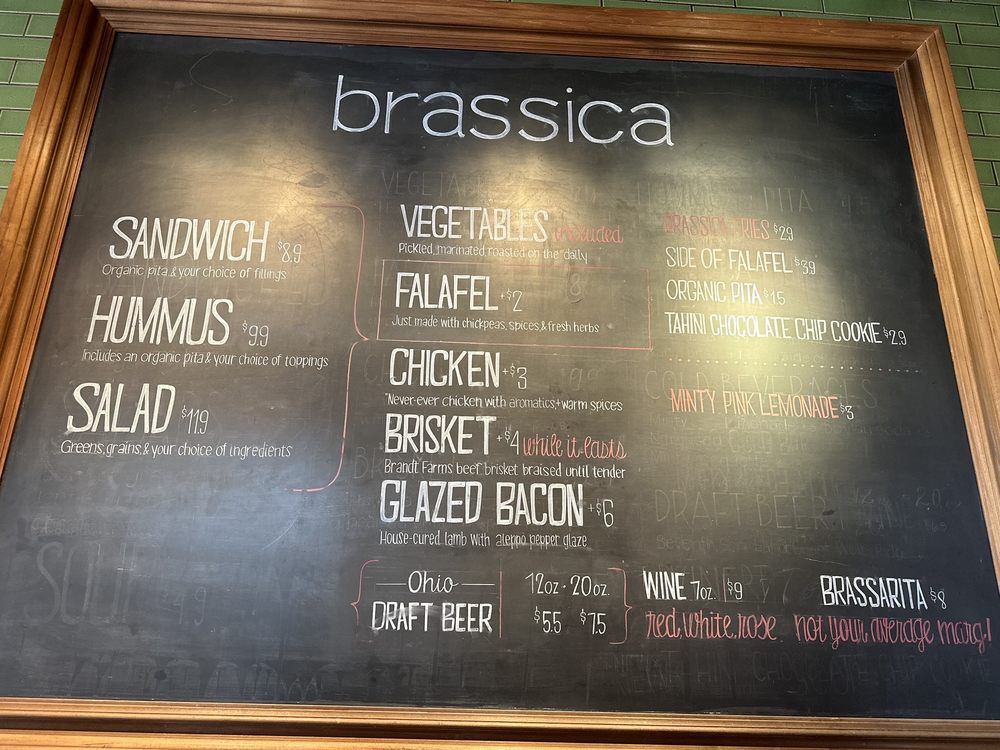 brassica
SANDWICH $8.9
Organic pita & your choice of fillings
HUMMUS $9.9
Includes an organic pita & your choice of toppings
SALAD $11.9
Greens, grains, & your choice of ingredients
VEGETABLES included
Pickled, marinated roasted on the daily
FALAFEL +$2
Just made with chickpeas, spices, & fresh herbs
CHICKEN +$3
Never-ever chicken with aromatics + warm spices
BRISKET +$4 while it lasts
Brandt Farms beef brisket braised until tender
GLAZED BACON +$6
House-cured lamb with aleppo pepper glaze
BRASSICA FRIES $2.9
SIDE OF FALAFEL $3.9
ORGANIC PITA $1.5
TAHINI CHOCOLATE CHIP COOKIE $2.9
MINTY PINK LEMONADE $3
Ohio
DRAFT BEER
12oz · 20oz.
$5.5 $7.5
WINE 7oz. $9
red, white, rose
BRASSARITA $8
not your average marg!
VEGETABLES
PITA
COLD BEVERAGES
DRAFT BEER
SOUP